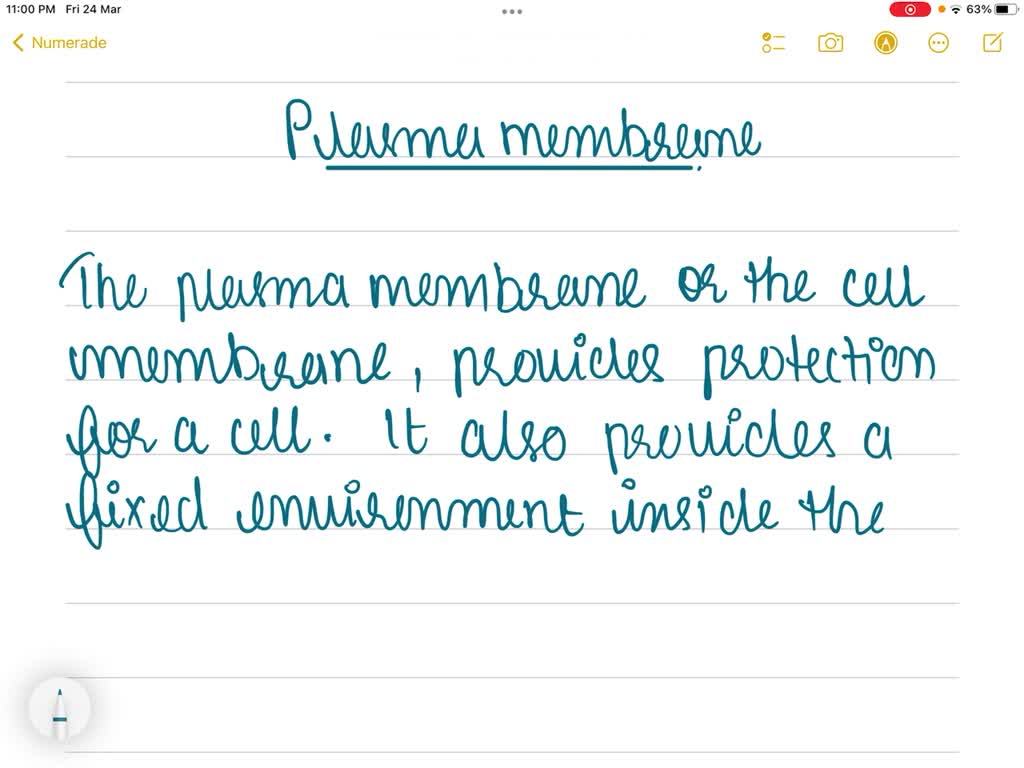 11:00 PM Fri 24 Mar 63%
Numerade
Plasma membrane
The plasma membrane or the cell
membrane, provides protection
for a cell. It also provides a
fixed environment inside the